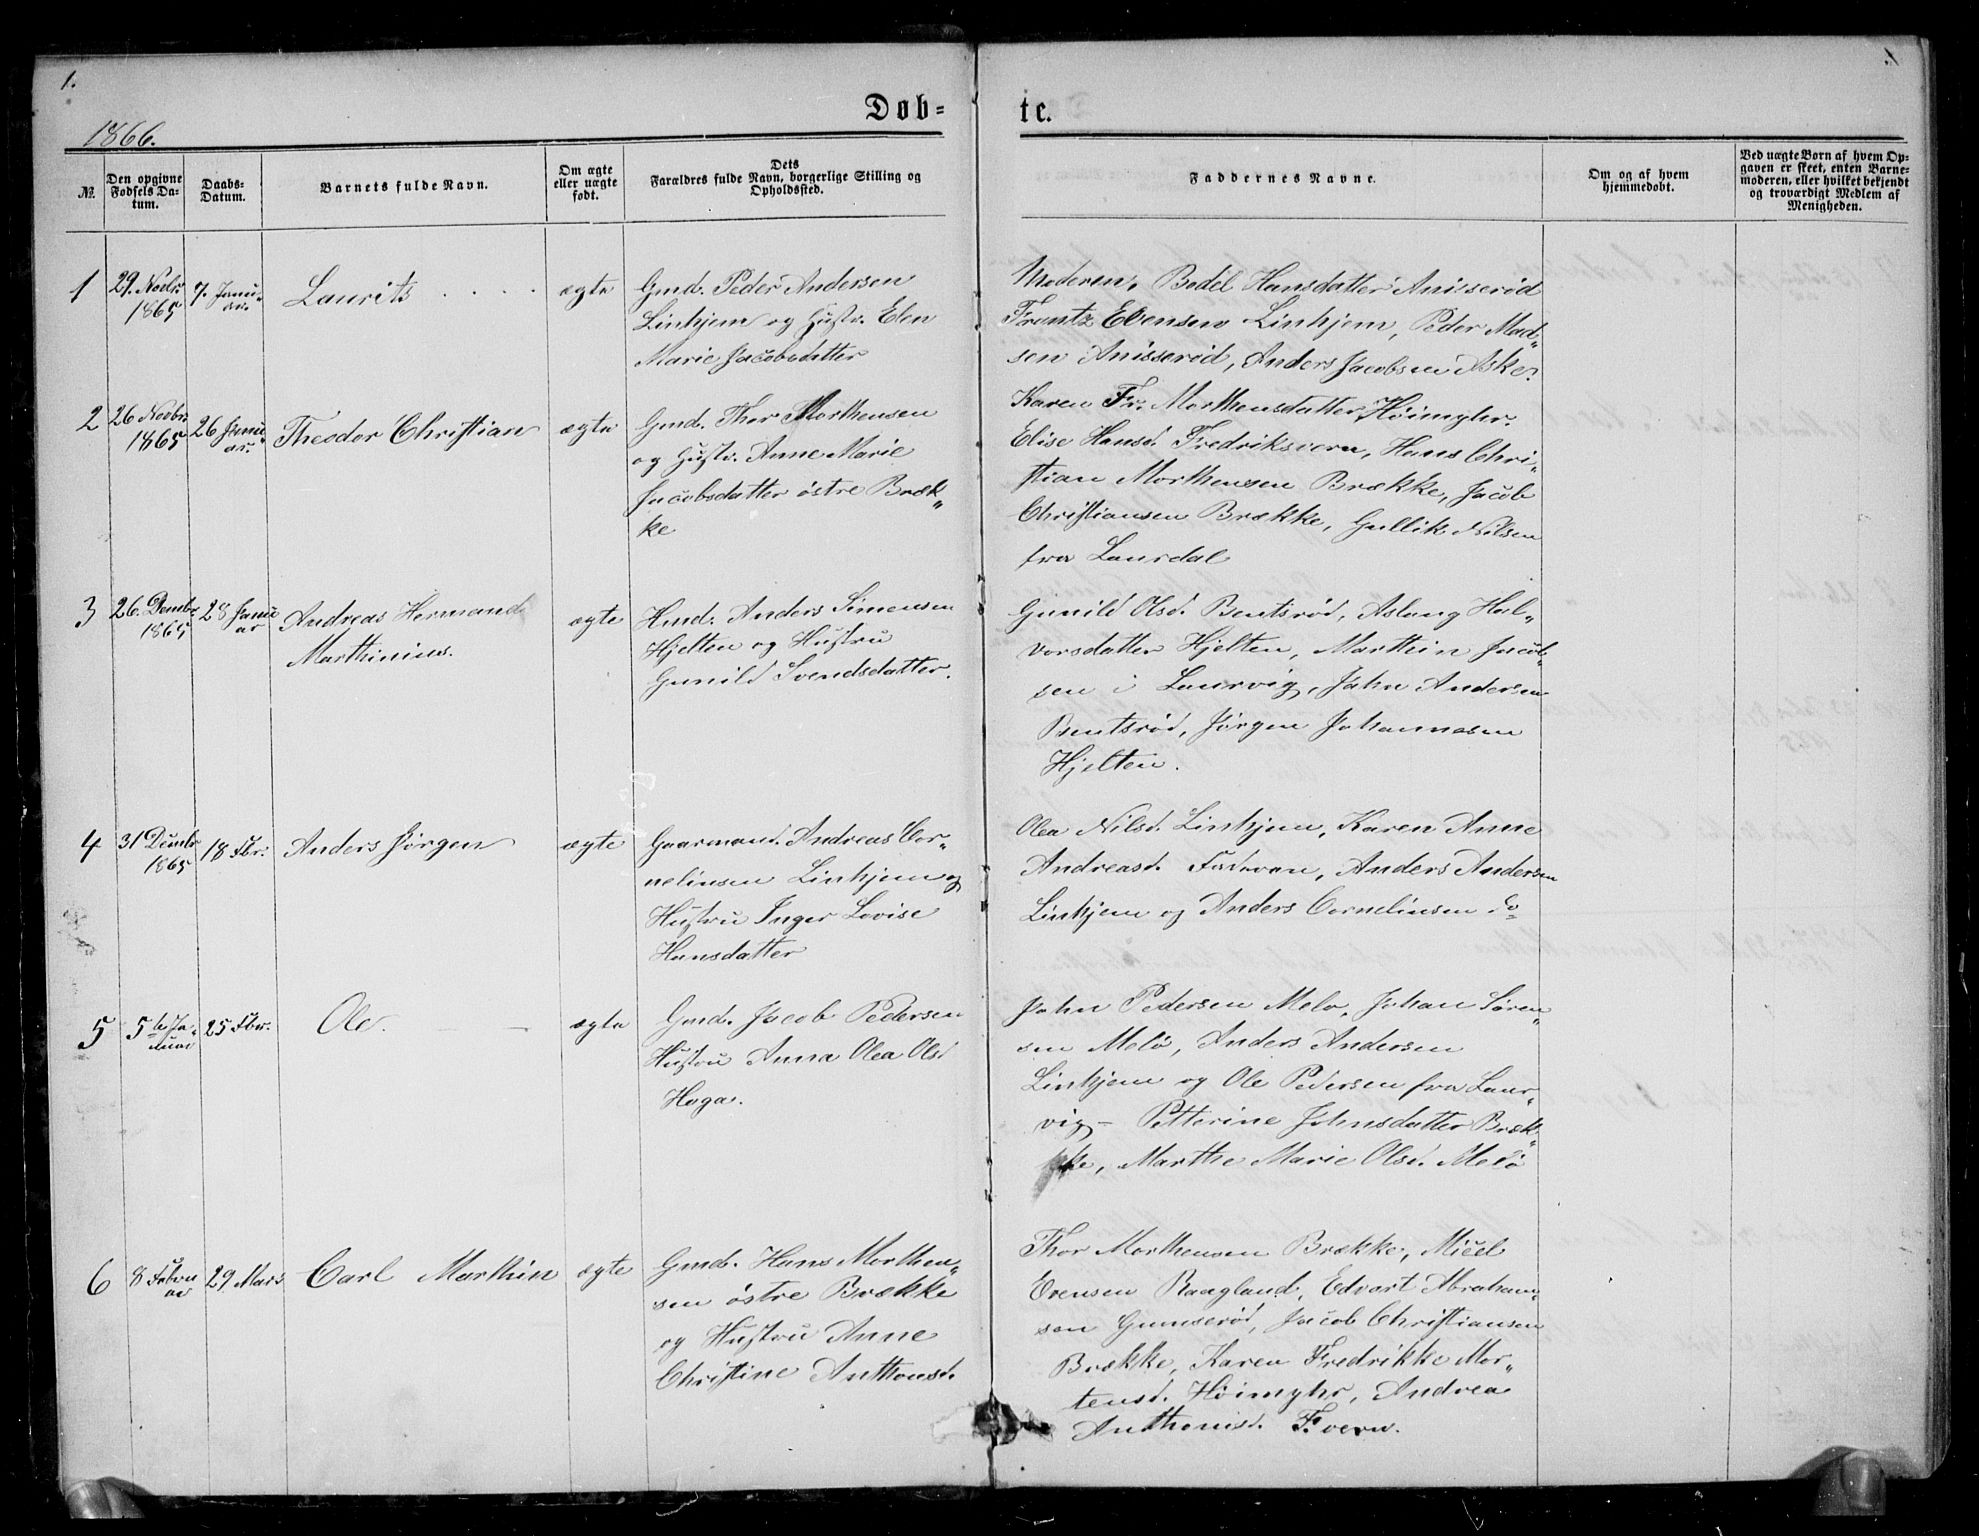 1.
1866.
Døb=
te.
№.
Den opgivne Fødsels Da-
tum.
Daabs-
Datum.
Barnets fulde Navn.
Om ægte eller uægte født.
Dets
Forældres fulde Navn, borgerlige Stilling og
Opholdssted.
Faddernes Navne.
Om og af hvem
hjemmedøbt.
Ved uægte Børn af hvem Op-
gaven er skeet, enten Barne-
moderen, eller hvilket bekjendt
og troværdigt Medlem af
Menigheden.
1
29. Novbr.
1865
7. Janu-
ar.
Laurits
ægte
Gmd. Peder Andersen
Linhjem og Hustr. Elen
Marie Jacobsdatter
Moderen, Bodel Hansdatter Anisserød
Frantz Evensen Linhjem, Peder Mad-
sen Anisserød, Anders Jacobsen Aske.
2
26 Novbr.
1865
26 Janu-
ar.
Theodor Christian
ægte
Gmd. Thor Morthensen
og Hustr. Anne Marie
Jacobsdatter østre Bræk-
ke
Karen Fr. Morthensdatter Høimyhr.
Elise Hansd. Fredriksvern, Hans Chri-
stian Morthensen Brække, Jacob
Christiansen Brække, Gullik Nilsen
fra Laurdal
3
26. Dembr
1865
28 Janu
ar
Andreas Hermand
Marthinius.
ægte
Hmd. Anders Simensen
Hjelten og Hustru
Gunild Svendsdatter.
Gunild Olsd. Bentsrød, Aslaug Hal-
vorsdatter Hjelten, Marthin Jacob-
sen i Laurvig, John Andersen
Bentsrød, Jørgen Johannesen
Hjelten.
4
31 Dembr
1865
18 Fbr.
Anders Jørgen
ægte
Gaarmand. Andreas Cor-
neliusen Linhjem og
Hustru Inger Lovise
Hansdatter
Olea Nilsd. Linhjem, Karen Anne
Andreasd. Anders Andersen
Linhjem og Anders Corneliusen do
5
5te Ja-
nuar
25 Fbr.
Ole.
ægte
Gmd. Jacob Pedersen
Hustru Anna Olea Olsd
Haga.
John Pedersen Melø, Johan Søren-
sen Melø, Anders Andersen
Linhjem og Ole Pedersen fra Laur-
vig - Petterine Johnsdatter Bræk-
ke, Marthe Marie Olsd. Melø
6
8 Febru
ar
29 Mars
Carl Marthin
ægte
Gmd. Hans Morthen-
sen østre Brække
og Hustru Anne
Christine Anthonsd.
Thor Morthensen Brække, Micel
Evensen Raagland, Edvart Abraham-
sen Gunnserød, Jacob Christiansen
Brække, Karen Fredrikke Mor-
tensd. Høimyhr, Andrea
Anthonisd. F.vern.